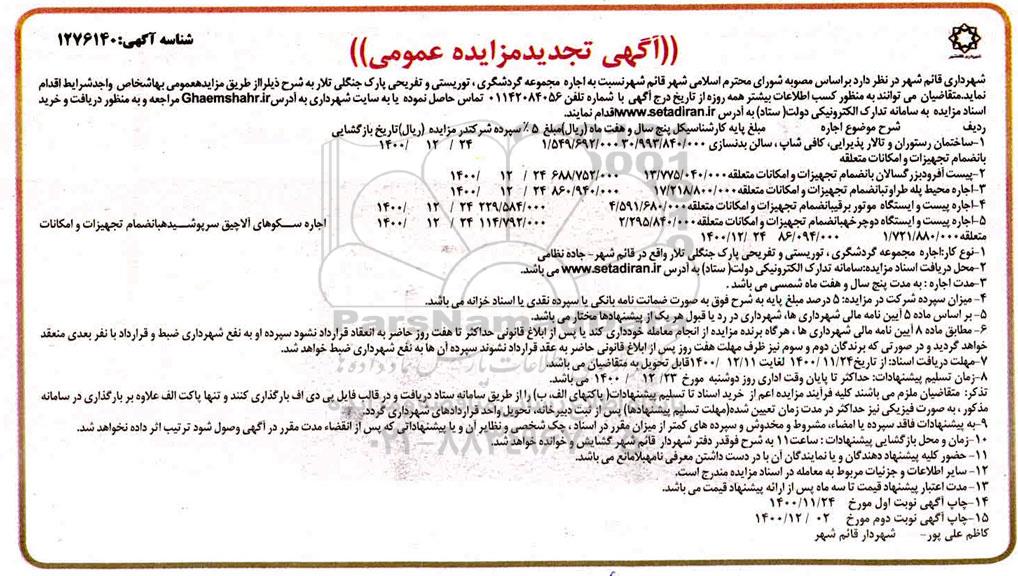 شناسه آگهی:۱۲۷۶۱۴۰
((آگهی تجدیدمزایده عمومی))
شهرداری قائم شهر در نظر دارد براساس مصوبه شورای محترم اسلامی شهر قائم شهرنسبت به اجاره مجموعه گردشگری ، توریستی و تفریحی پارک جنگلی تلار به شرح ذیلرااز طریق مزایدهعمومی بهاشخاص واجدشرایط اقدام
نماید.متقاضیان می توانند به منظور کسب اطلاعات بیشتر همه روزه از تاریخ درج آگهی با شماره تلفن ۰۱۱۴۲۰۸۴۰۵۶ تماس حاصل نموده یا به سایت شهرداری به آدرسGhaemshahr.ir مراجعه و به منظور دریافت و خرید
اسناد مزایده به سامانه تدارک الکترونیکی دولت( ستاد) به آدرس www.setadiran.irاقدام نمایند.
ردیف شرح موضوع اجاره مبلغ پایه کارشناسیکل پنج سال و هفت ماه (ریال)مبلغ ۵٪ سپرده شرکتدر مزایده (ریال)تاریخ بازگشایی
۱-ساختمان رستوران و تالار پذیرایی، کافی شاپ ، سالن بدنسازی ۳۰/۹۹۳/۸۴۰/۰۰۰ ۱/۵۴۹/۶۹۲/۰۰۰ ۲۴ / ۱۲ / ۱۴۰۰
بانضمام تجهیزات و امکانات متعلقه
۲-پیست آفرودبزرگسالان بانضمام تجهیزات و امکانات متعلقه۱۳/۷۷۵/۰۴۰/۰۰۰ ۶۸۸/۷۵۲/۰۰۰ ۲۴ / ۱۲ / ۱۴۰۰
۳-اجاره محیط پله طراوتبانضمام تجهیزات و امکانات متعلقه۱۷/۲۱۸/۸۰۰/۰۰۰ ۸۶۰/۹۴۰/۰۰۰ ۲۴ / ۱۲ / ۱۴۰۰
۴-اجاره پیست و ایستگاه موتور برقیبانضمام تجهیزات و امکانات متعلقه۴/۵۹۱/۶۸۰/۰۰۰ ۲۲۹/۵۸۴/۰۰۰ ۲۴ / ۱۲ / ۱۴۰۰
۵-اجاره پیست و ایستگاه دوچرخهبانضمام تجهیزات و امکانات متعلقه۲/۲۹۵/۸۴۰/۰۰۰ ۱۱۴/۷۹۲/۰۰۰ ۲۴ / ۱۲ / ۱۴۰۰ اجاره سـکوهای آلاچیق سرپوشـیدهبانضمام تجهیزات و امکانات
متعلقه۱/۷۲۱/۸۸۰/۰۰۰ ۸۶/۰۹۴/۰۰۰ ۲۴ /۱۴۰۰/۱۲
۱-نوع کار:اجاره مجموعه گردشگری ، توریستی و تفریحی پارک جنگلی تلار واقع در قائم شهر- جاده نظامی
۲-محل دریافت اسناد مزایده:سامانه تدارک الکترونیکی دولت( ستاد) به آدرس www.setadiran.ir می باشد.
۳-مدت اجاره : به مدت پنج سال و هفت ماه شمسی می باشد .
۴- میزان سپرده شرکت در مزایده: ۵ درصد مبلغ پایه به شرح فوق به صورت ضمانت نامه بانکی یا سپرده نقدی یا اسناد خزانه می باشد.
۵- بر اساس ماده ۵ آیین نامه مالی شهرداری ها، شهرداری در رد یا قبول هر یک از پیشنهادها مختار می باشد.
۶- مطابق ماده ۸ آیین نامه مالی شهرداری ها ، هرگاه برنده مزایده از انجام معامله خودداری کند یا پس از ابلاغ قانونی حداکثر تا هفت روز حاضر به انعقاد قرارداد نشود سپرده او به نفع شهرداری ضبط و قرارداد با نفر بعدی منعقد
خواهد گردید و در صورتی که برندگان دوم و سوم نیز ظرف مهلت هفت روز پس از ابلاغ قانونی حاضر به عقد قرارداد نشوند سپرده آن ها به نفع شهرداری ضبط خواهد شد.
۷-مهلت دریافت اسناد: از تاریخ۱۴۰۰/۱۱/۲۴ لغایت ۱۲/۱۱ /۱۴۰۰قابل تحویل به متقاضیان می باشد.
۸-زمان تسلیم پیشنهادات: حداکثر تا پایان وقت اداری روز دوشنبه مورخ ۲۳/ ۱۲ / ۱۴۰۰ می باشد.
تذکر: متقاضیان ملزم می باشند کلیه فرآیند مزایده اعم از خرید اسناد تا تسلیم پیشنهادات( پاکتهای الف، ب) را از طریق سامانه ستاد دریافت و در قالب فایل پی دی اف بارگذاری کنند و تنها پاکت الف علاوه بر بارگذاری در سامانه
مذکور ، به صورت فیزیکی نیز حداکثر در مدت زمان تعیین شده(مهلت تسلیم پیشنهادها) پس از ثبت دبیرخانه، تحویل واحد قراردادهای شهرداری گردد.
۹-به پیشنهادات فاقد سپرده یا امضاء، مشروط و مخدوش و سپرده های کمتر از میزان مقرر در اسناد ، چک شخصی و نظایر آن و یا پیشنهاداتی که پس از انقضاء مدت مقرر در آگهی وصول شود ترتیب اثر داده نخواهد شد.
۱۰-زمان و محل بازگشایی پیشنهادات : ساعت۱۱ به شرح فوقدر دفتر شهردار قائم شهر گشایش و خوانده خواهد شد.
۱۱- حضور کلیه پیشنهاد دهندگان و یا نمایندگان آن با در دست داشتن معرفی نامهبلامانع می باشد.
۱۲- سایر اطلاعات و جزئیات مربوط به معامله در اسناد مزایده مندرج است.
۱۳-مدت اعتبار پیشنهاد قیمت تا سه ماه پس از ارائه پیشنهاد قیمت می باشد.
۱۴-چاپ آگهی نوبت اول مورخ ۱۴۰۰/۱۱/۲۴
۱۵-چاپ آگهی نوبت دوم مورخ ۰۲ / ۱۴۰۰/۱۲
کاظم علی پور- شهردار قائم شهر